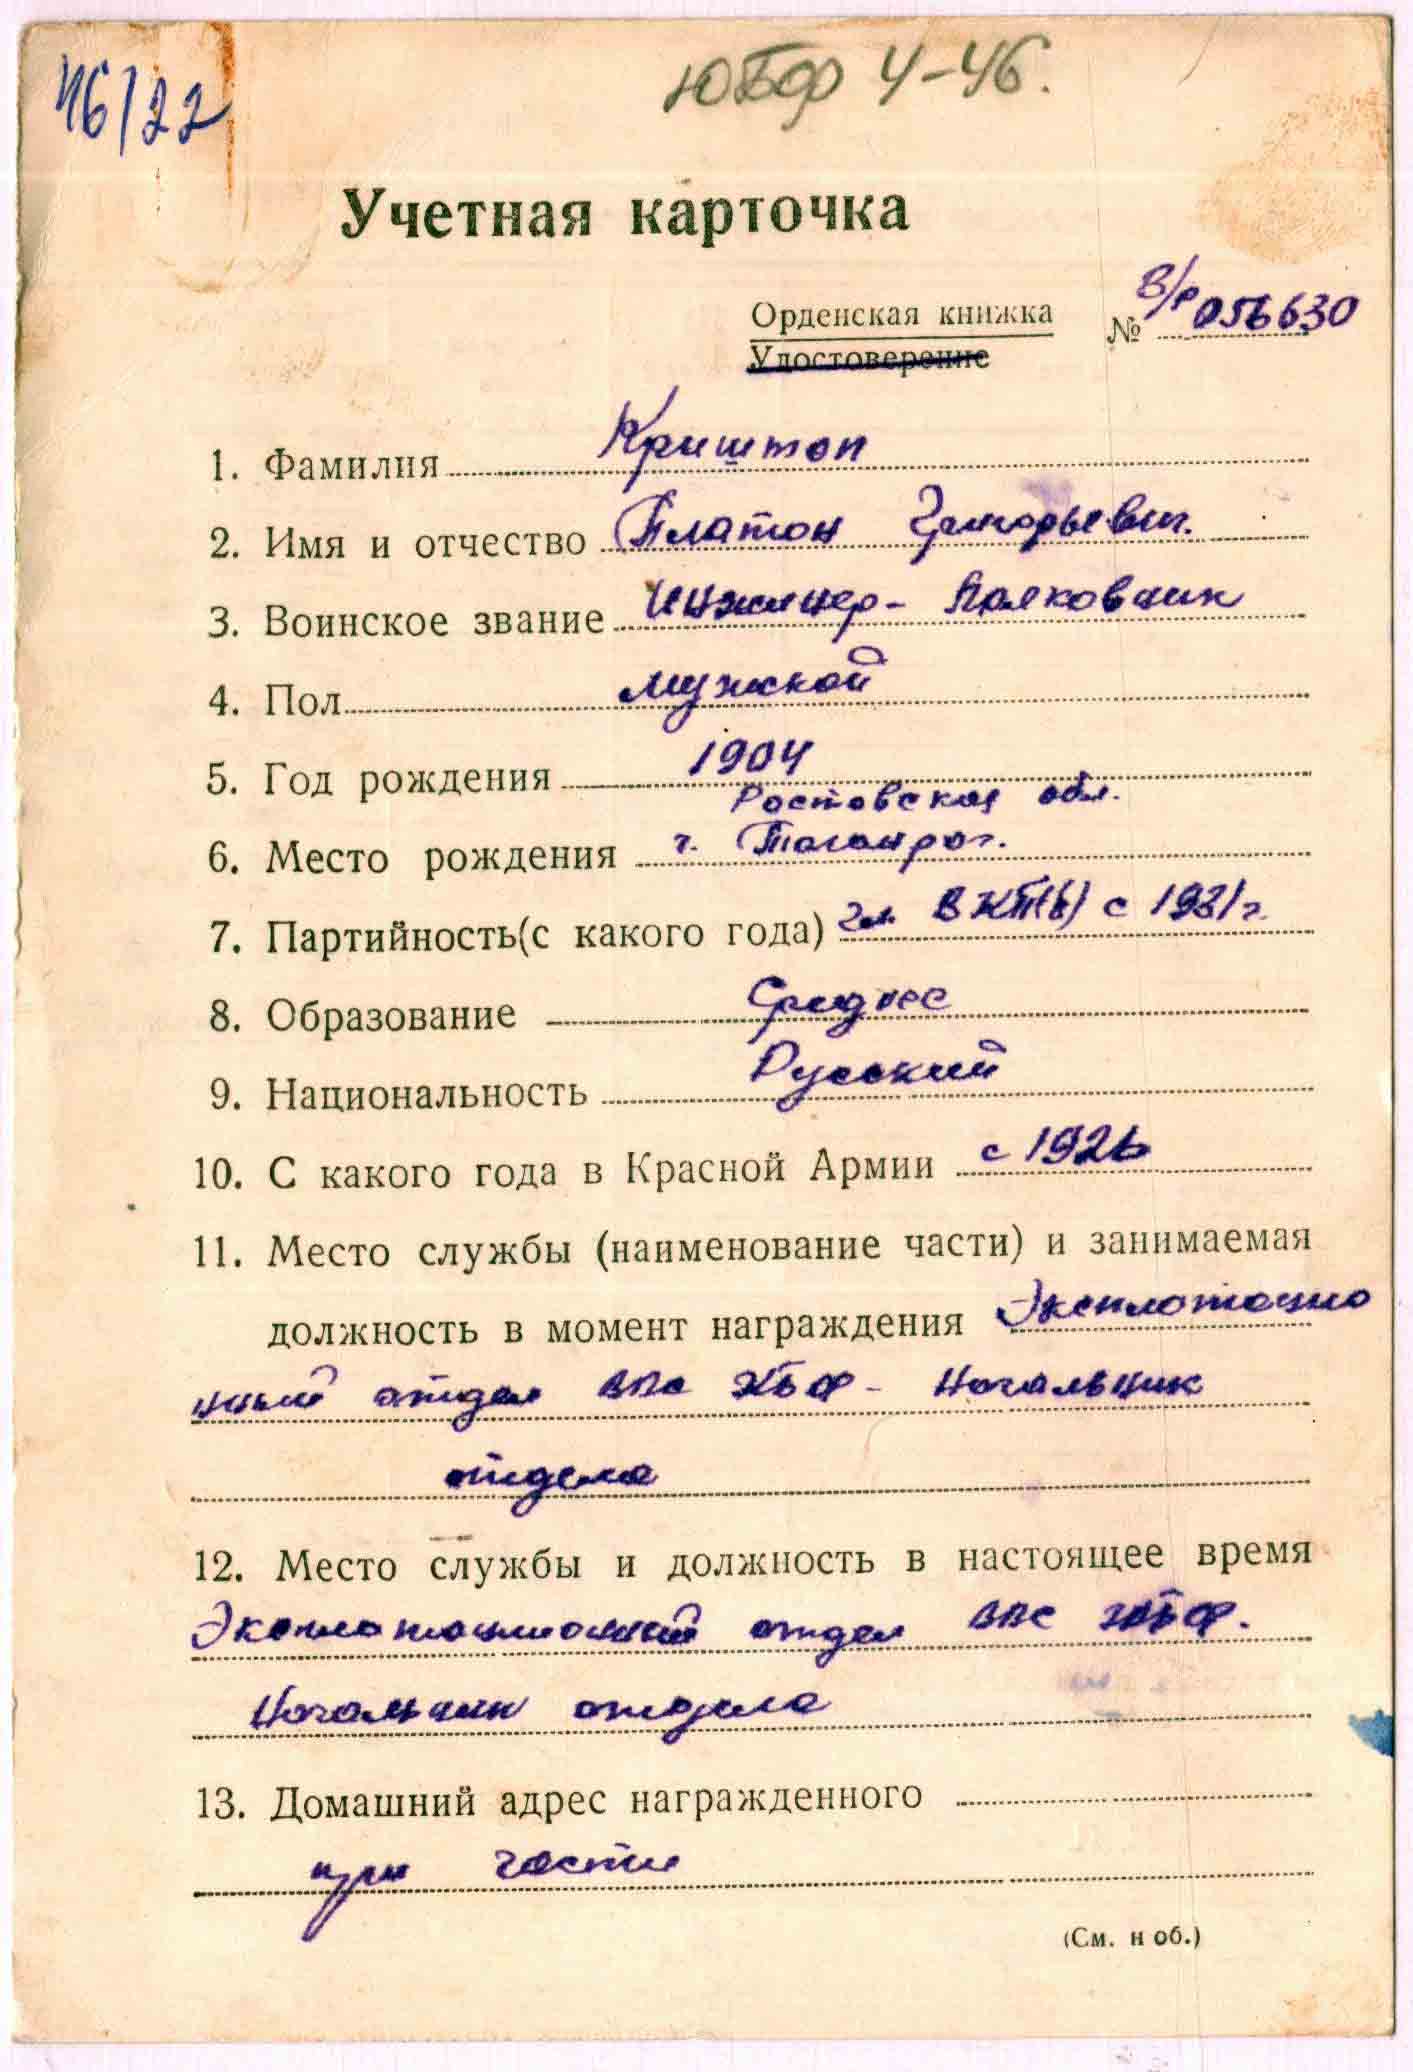 46/22
ЮБФ 4-46.
Учетная карточка
Орденская книжка № В/р 056630
Удостоверение
1. Фамилия Криштоп
2. Имя и отчество Платон Григорьевич.
3. Воинское звание Инженер-Полковник
4. Пол мужской
5. Год рождения 1904
Ростовская обл.
6. Место рождения г. Таганрог.
7. Партийность(с какого года) чл. ВКП(б) с 1931 г.
8. Образование Среднее
9. Национальность Русский
10. С какого года в Красной Армии с 1926
11. Место службы (наименование части) и занимаемая
должность в момент награждения Эксплотацио
нный отдел ВВС ЮБФ - Начальник
отдела
12. Место службы и должность в настоящее время
Эксплотационный отдел ВВС ЮБФ.
Начальник отдела
13. Домашний адрес награжденного
при части
(См. н об.)